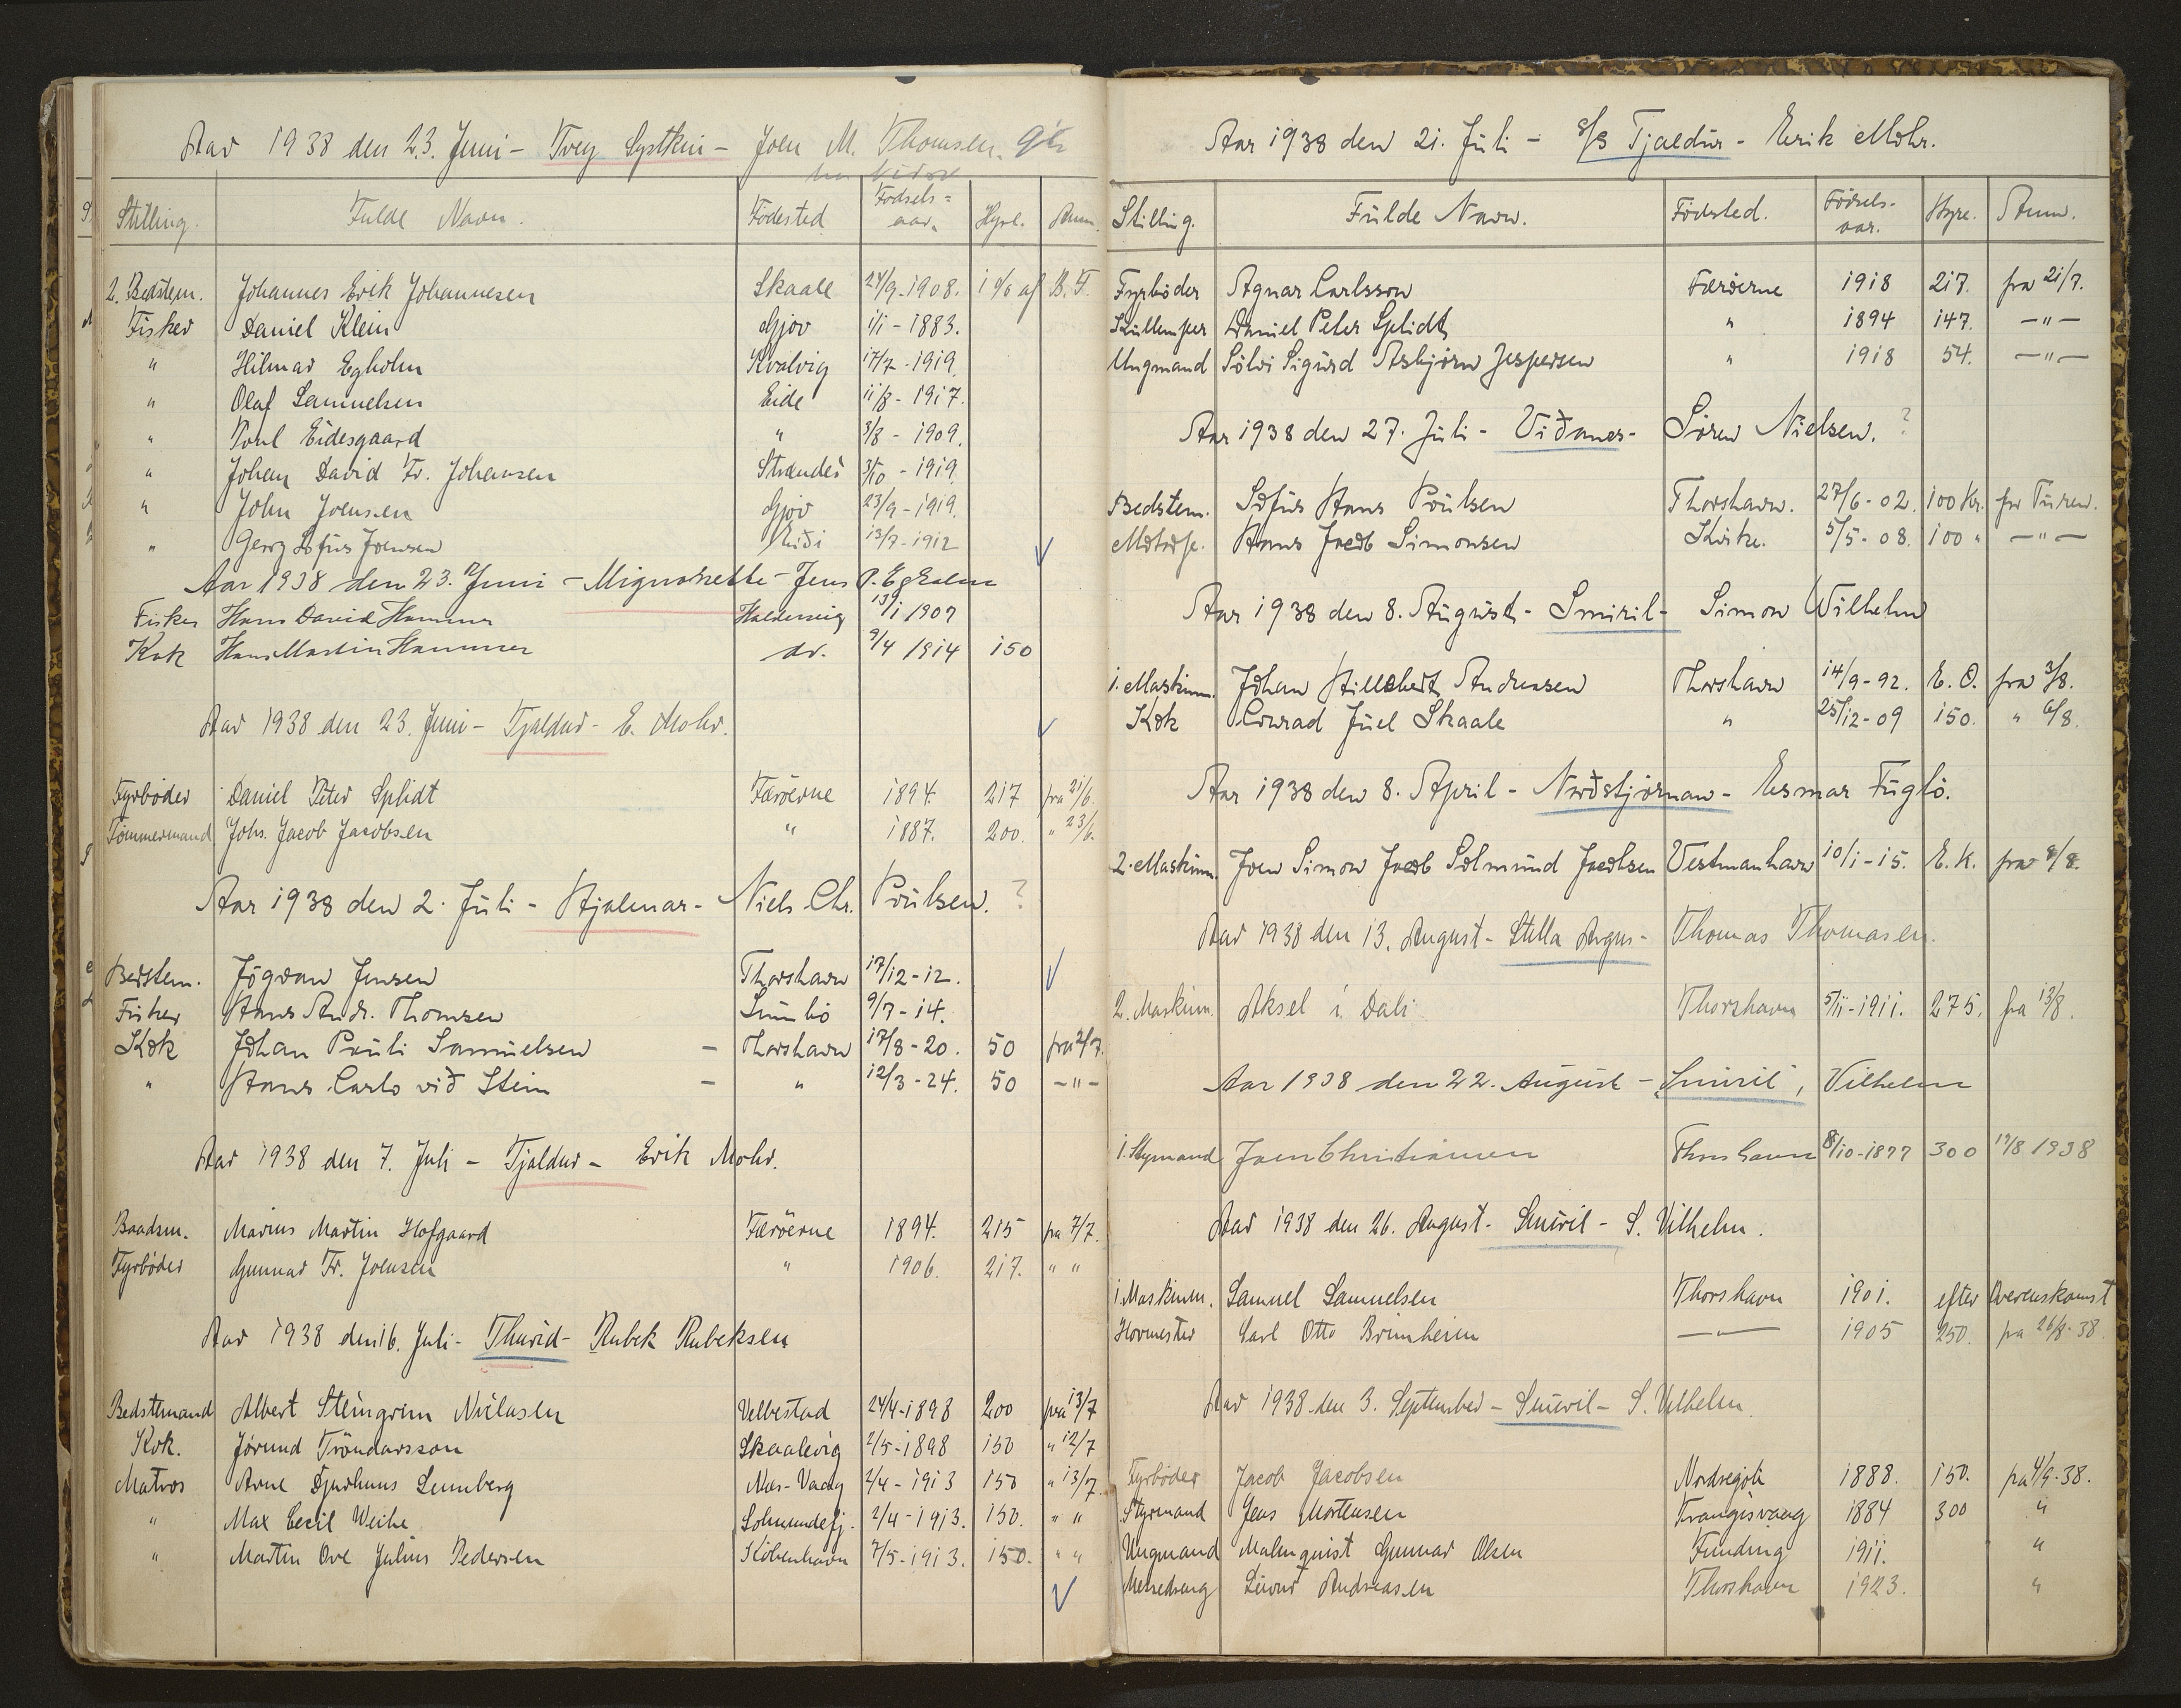 Aar 1938 den 23. Juni - Tvey Systkin - Joen M. Thomsen.
Stilling. Fulde Navn. Födested Födsels=aar. Hyre. Anm.
2. Bedstem. Johannes Erik Johannesen Skaale 24/9-1908. 1% af B.F.
Fisker Daniel Klein Gjov 1/1 - 1883.
" Hilmar Egholm Kvalvig 17/7 - 1919.
" Olaf Samuelsen Eide 11/8 - 1917.
" Poul Eidesgaard " 3/8 - 1909.
" Johan David Fr. Johansen Strendes 3/10 - 1919.
" John Joensen Gjov 23/9 - 1919.
" Georg Sofus Joensen Eiði 13/7-1912
Aar 1938 den 23. Juni - Mignonette - Jens P. Egholm
Fisker Hans David Hammer Haldersvig 13/1 1907
Kok Hans Martin Hammer do. 9/4 1914 150
Aar 1938 den 23. Juni - Tjaldur - E. Mohr.
Fyrböder Daniel Peter Splidt Færöerne 1894. 217 fra 21/6.
Tömmermand Johs. Jacob Jacobsen " 1887. 200. " 23/6.
Aar 1938 den 2. Júli - Hjalmar - Niels Chr. Poulsen. ?
Bedstem. Jógvan Jensen Thorshavn 17/12-12.
Fisker Hans Andr. Thomsen Sumbö 9/7-14.
Kok Johan Pauli Samuelsen - Thorshavn 17/8-20. 50 fra 2/7.
" Hans Carlo við Stein - " 12/3-24. 50 -"-
Aar 1938 den 7. Juli - Tjaldur - Erik Mohr.
Baadsm. Marius Martin Hofgaard Færöerne 1894. 215 fra 7/7.
Fyrböder Gunnar Fr. Joensen " 1906. 217. " "
Aar 1938 den 16. Juli - Thurid - Rubek Rubeksen
Bedstemand Albert Steingrim Niclasen Velbestad 24/4-1898 200 fra 13/7
Kok. Jörund Tróndarsson Skaalevig 2/5-1898 150 " 12/7
Matros Arne Djurhuus Lunnberg Nes-Vaag 2/4-1913 150 " 13/7.
" Max Cecil Weihe Solmundefj. 2/4-1913. 150. " "
" Martin Ove Julius Pedersen Köbenhavn 7/5-1913. 150. " "
Aar 1938 den 21. Júli - s/s Tjaldur - Erik Mohr.
Stilling. Fulde Navn. Födested. Födsels-aar. Hyre. Anm.
Fyrböder Agnar Carlsson Færöerne 1918 217. fra 21/7.
Kullemper Daniel Peter Splidt " 1894 147. -"-
Ungmand Sölvi Sigurd Asbjörn Jespersen " 1918 54. -"-
Aar 1938 den 27. Júli - Viðanes - Sören Nielsen. ?
Bedstem. Sofus Hans Poulsen Thorshavn. 27/6-02. 100 Kr. for Turen.
Motorp. Hans Jacob Simonsen 5/5-08. 100 " -"-
Aar 1938 den 8. Augúst - Smiril - Simon Wilhelm
1. Maskinm. Johan Hillebert Andreasen Thorshavn 14/9-92. E. O. fra 3/8.
Kok Conrad Juel Skaale " 25/12-09 150. " 6/8.
Aar 1938 den 8. April - Norðstjörnan - Esmar Fuglö.
2. Maskinm. Joen Simon Jacob Solmund Jacobsen Vestmanhavn 10/1-15. E. K. fra 8/8.
Aar 1938 den 13. August - Stella Argus - Thomas Thomasen.
2. Maskinm. Aksel i Dali Thorshavn 5/11-1911. 275. fra 13/8.
Aar 1938 den 22. August - "Smiril", Vilhelm
1. Styrmand Joen Christiansen Thorshavn 8/10-1877 300 19/8 1938
Aar 1938 den 26. August - Smiril - S. Vilhelm.
1. Maskinm. Samuel Samuelsen Thorshavn 1901. efter Overenskomst
Hovmester Carl Otto Brimheim -"- 1905 250. fra 26/8-38.
Aar 1938 den 3. September - Smiril - S. Vilhelm.
Fyrböder Jacob Jacobsen Nordregöte 1888. 150. fra 4/9-38.
Styrmand Jens Mortensen Trangisvaag 1884 300 "
Ungmand Malmquist Gunnar Olsen Funding 1911. "
Messedreng Andreasen Thorshavn 1923. "